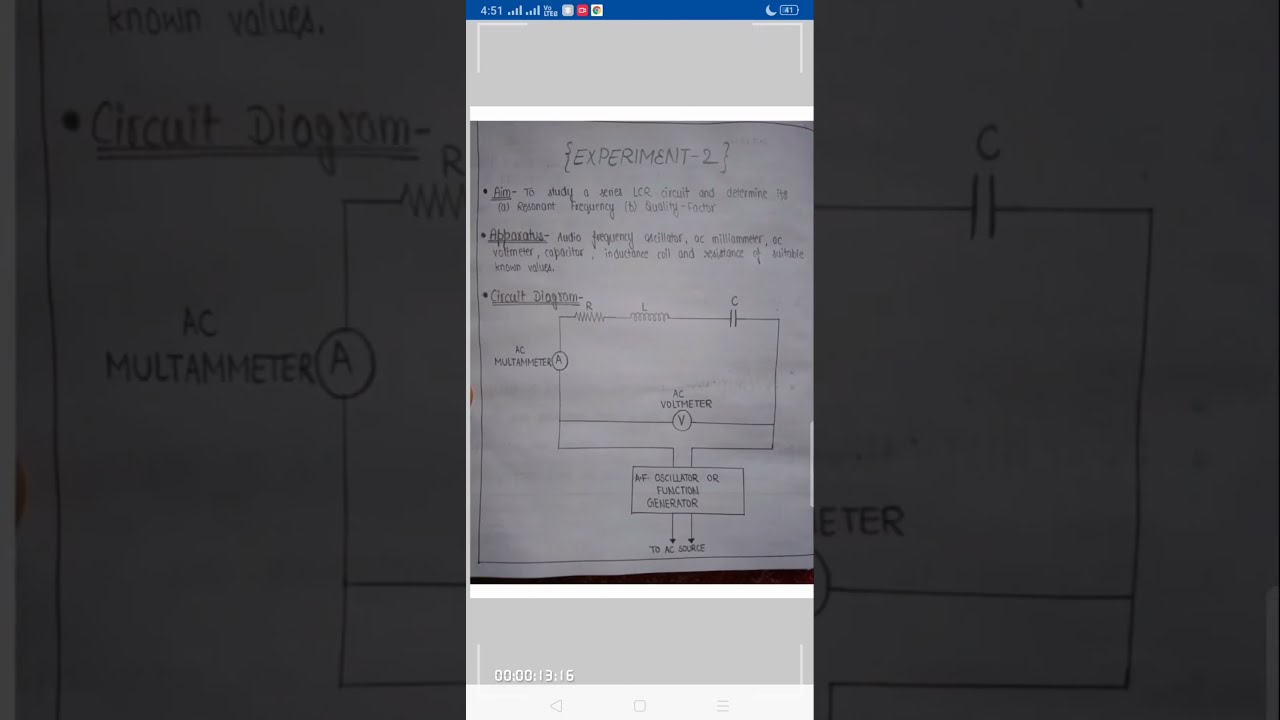 4:51
Vo
LTE
41
known values.
• Circuit Diagram-
R
C
AC
MULTAMMETER
A
ETER
{EXPERIMENT-2}
• Aim- To study a series LCR circuit and determine its
(a) Resonant Frequency (b) Quality-Factor
• Apparatus- Audio frequency oscillator, ac milliammeter, ac
voltmeter, capacitor, inductance coil and resistance of suitable
known values.
• Circuit Diagram-
R
L
C
AC
MULTAMMETER
A
AC
VOLTMETER
V
A.F. OSCILLATOR OR
FUNCTION
GENERATOR
TO AC SOURCE
00:00:13:16